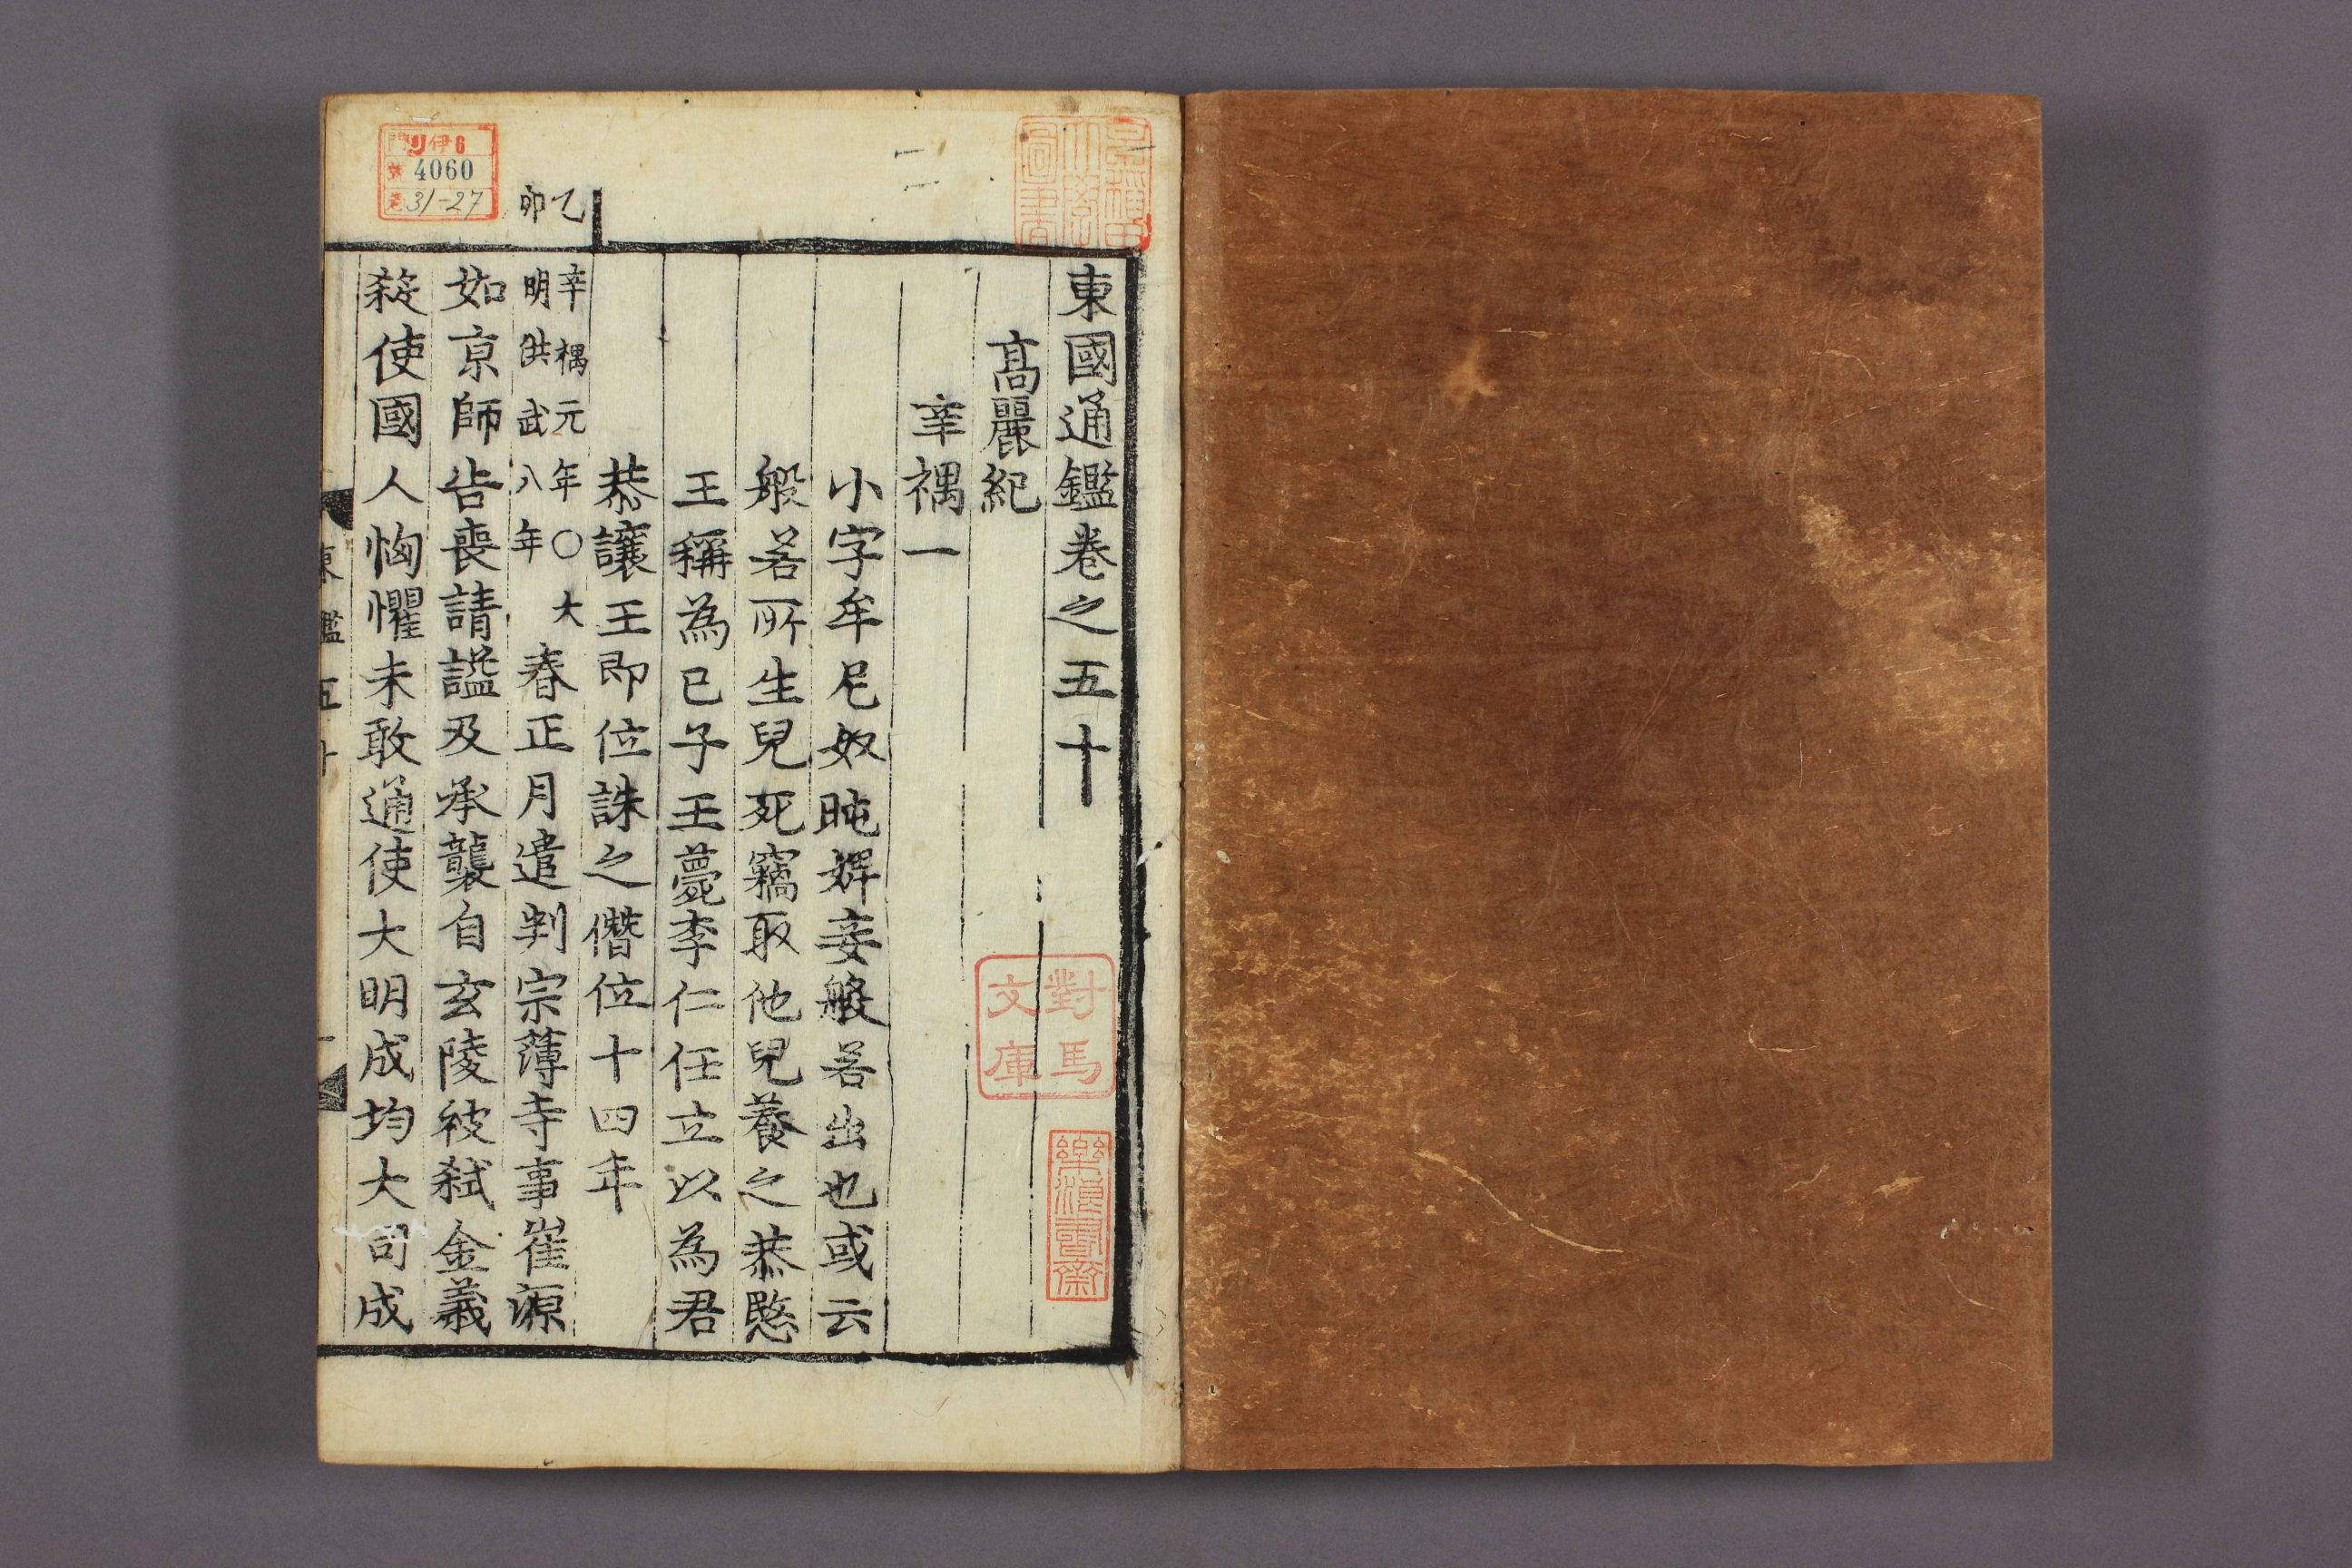 東國通鑑卷之五十
高麗紀
辛禑一
小字牟尼奴旽婢妾般若出也或云
般若所生兒死竊取他兒養之恭愍
王稱為己子王薨李仁任立以為君
恭讓王即位誅之僭位十四年
乙
卯
辛禑元年○大
明洪武八年
春正月遣判宗薄寺事崔源
如京師告喪請謚及承襲自玄陵被弑金義
殺使國人恟懼未敢通使大明成均大司成
東鑑五十
一
門 リ伊6
號 4060
卷 31-27
對馬
文庫
樂浪書齋